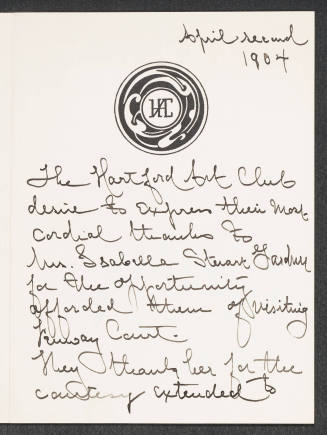 April second
1904
HAC
The Hartford Art Club
desire to express their most
cordial thanks to
Mrs. Isabella Stewart Gardner
for the opportunity
afforded them of visiting
Fenway Court.
They thank her for the
courtesy extended to